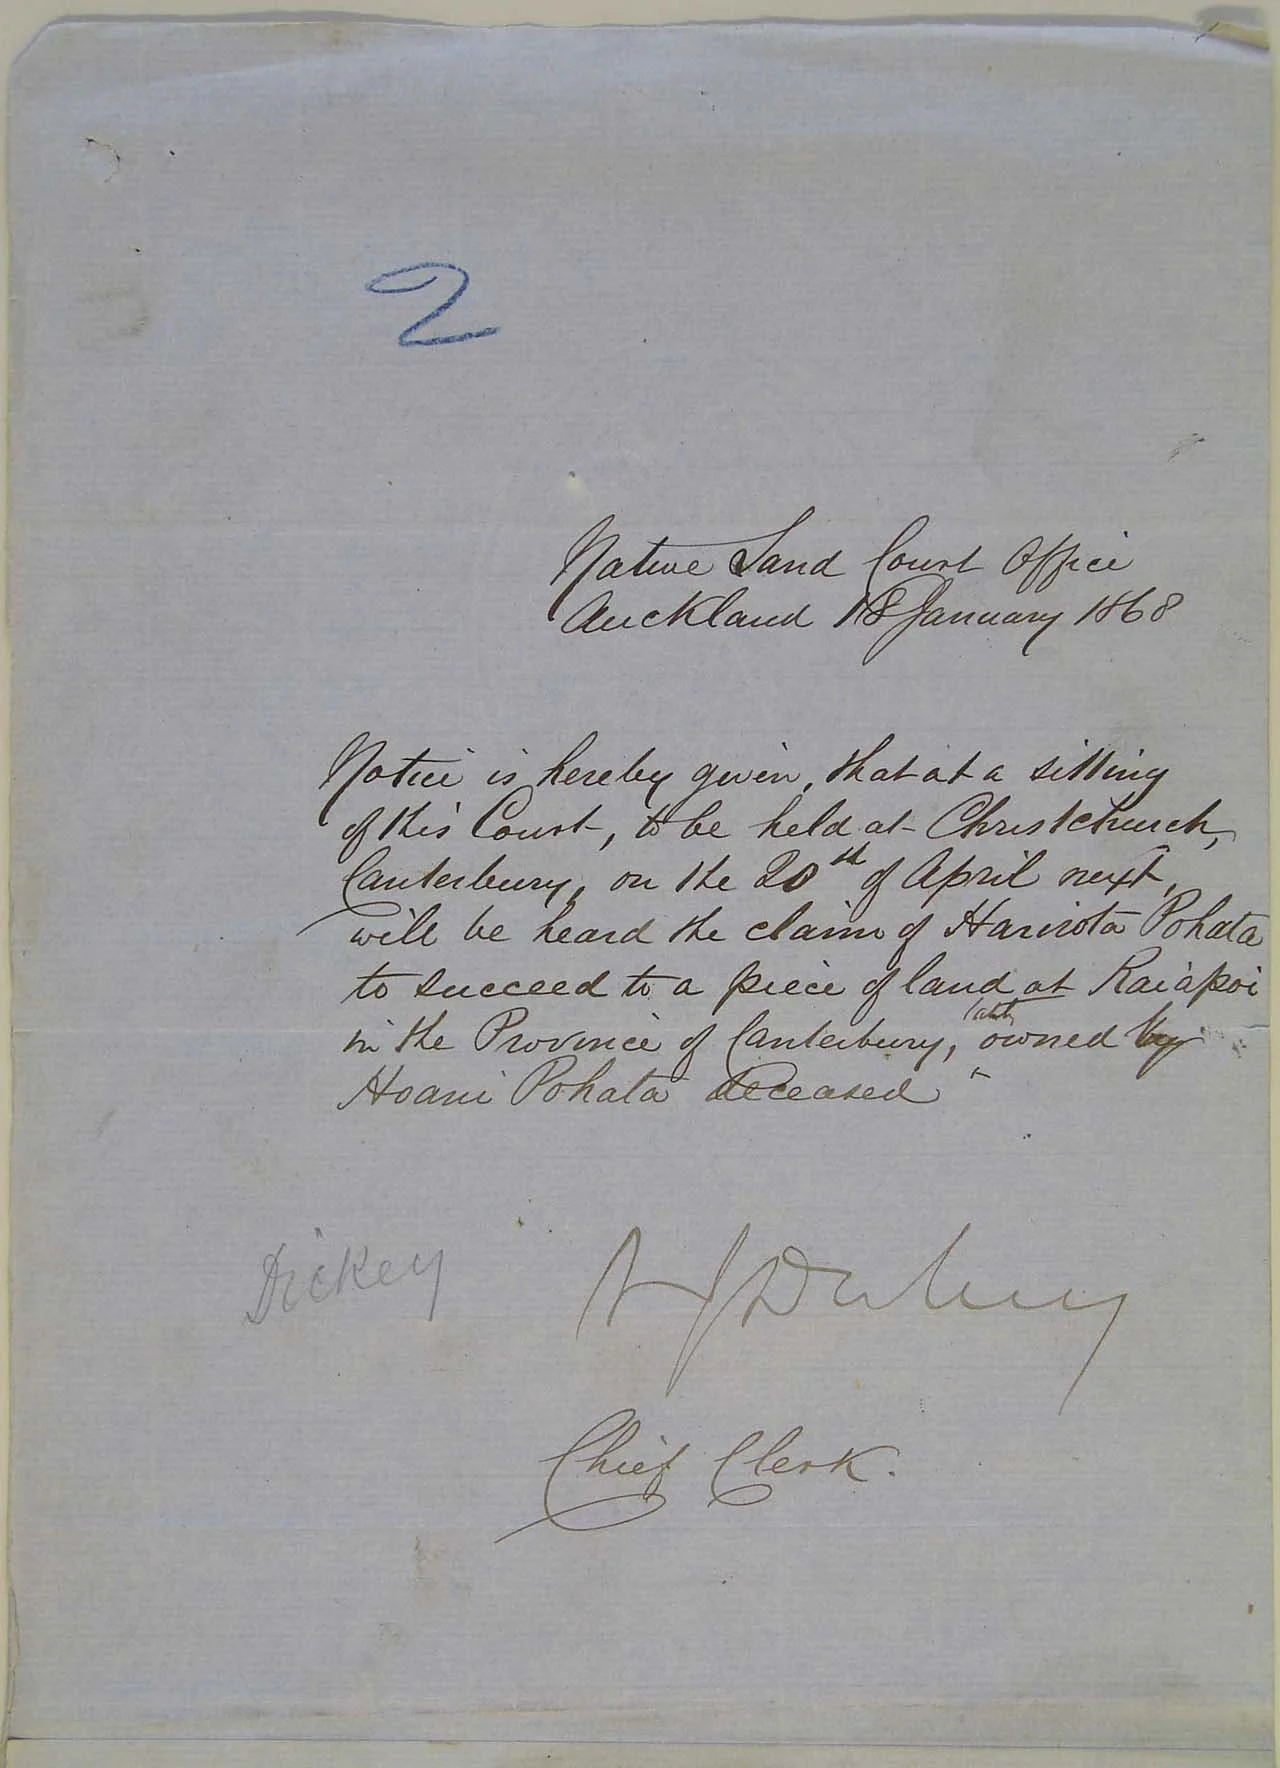 2
Native Land Court Office
Auckland 18 January 1868
Notice is hereby given, that at a sitting
of this Court, to be held at Christchurch,
Canterbury, on the 20th of April next,
will be heard the claim of Harirota Pohata
to succeed to a piece of land at Kaiapoi
in the Province of Canterbury, lately owned by
Hoani Pohata deceased
Dickey
Chief Clerk.